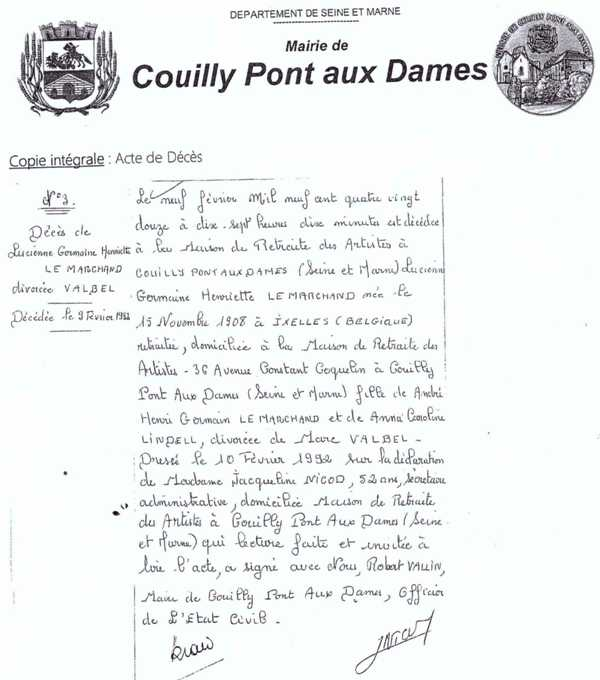 DEPARTEMENT DE SEINE ET MARNE
Mairie de
Couilly Pont aux Dames
Copie intégrale : Acte de Décès
N°3.
Décès de
Lucienne Germaine Henriette
LE MARCHAND
divorcée VALBEL
Décédée le 9 Février 1992
Le neuf février Mil neuf cent quatre vingt
douze à dix-sept heures dix minutes est décédée
à la Maison de Retraite des Artistes à
COUILLY PONT AUX DAMES (Seine et Marne) Lucienne
Germaine Henriette LE MARCHAND née le
15 Novembre 1908 à IXELLES (BELGIQUE)
retraitée, domiciliée à la Maison de Retraite des
Artistes - 36 Avenue Constant Coquelin à Couilly
Pont Aux Dames (Seine et Marne) fille de André
Henri Germain LE MARCHAND et de Anna Caroline
LINDELL, divorcée de Marc VALBEL -
Dressé le 10 Février 1992 sur la déclaration
de Madame Jacqueline NICOD, 52 ans, secrétaire
administrative, domiciliée Maison de Retraite
des Artistes à Couilly Pont Aux Dames (Seine
et Marne) qui lecture faite et invitée à
lire l'acte, a signé avec Nous, Robert VALLIN,
Maire de Couilly Pont Aux Dames, Officier
de L'Etat Civil -